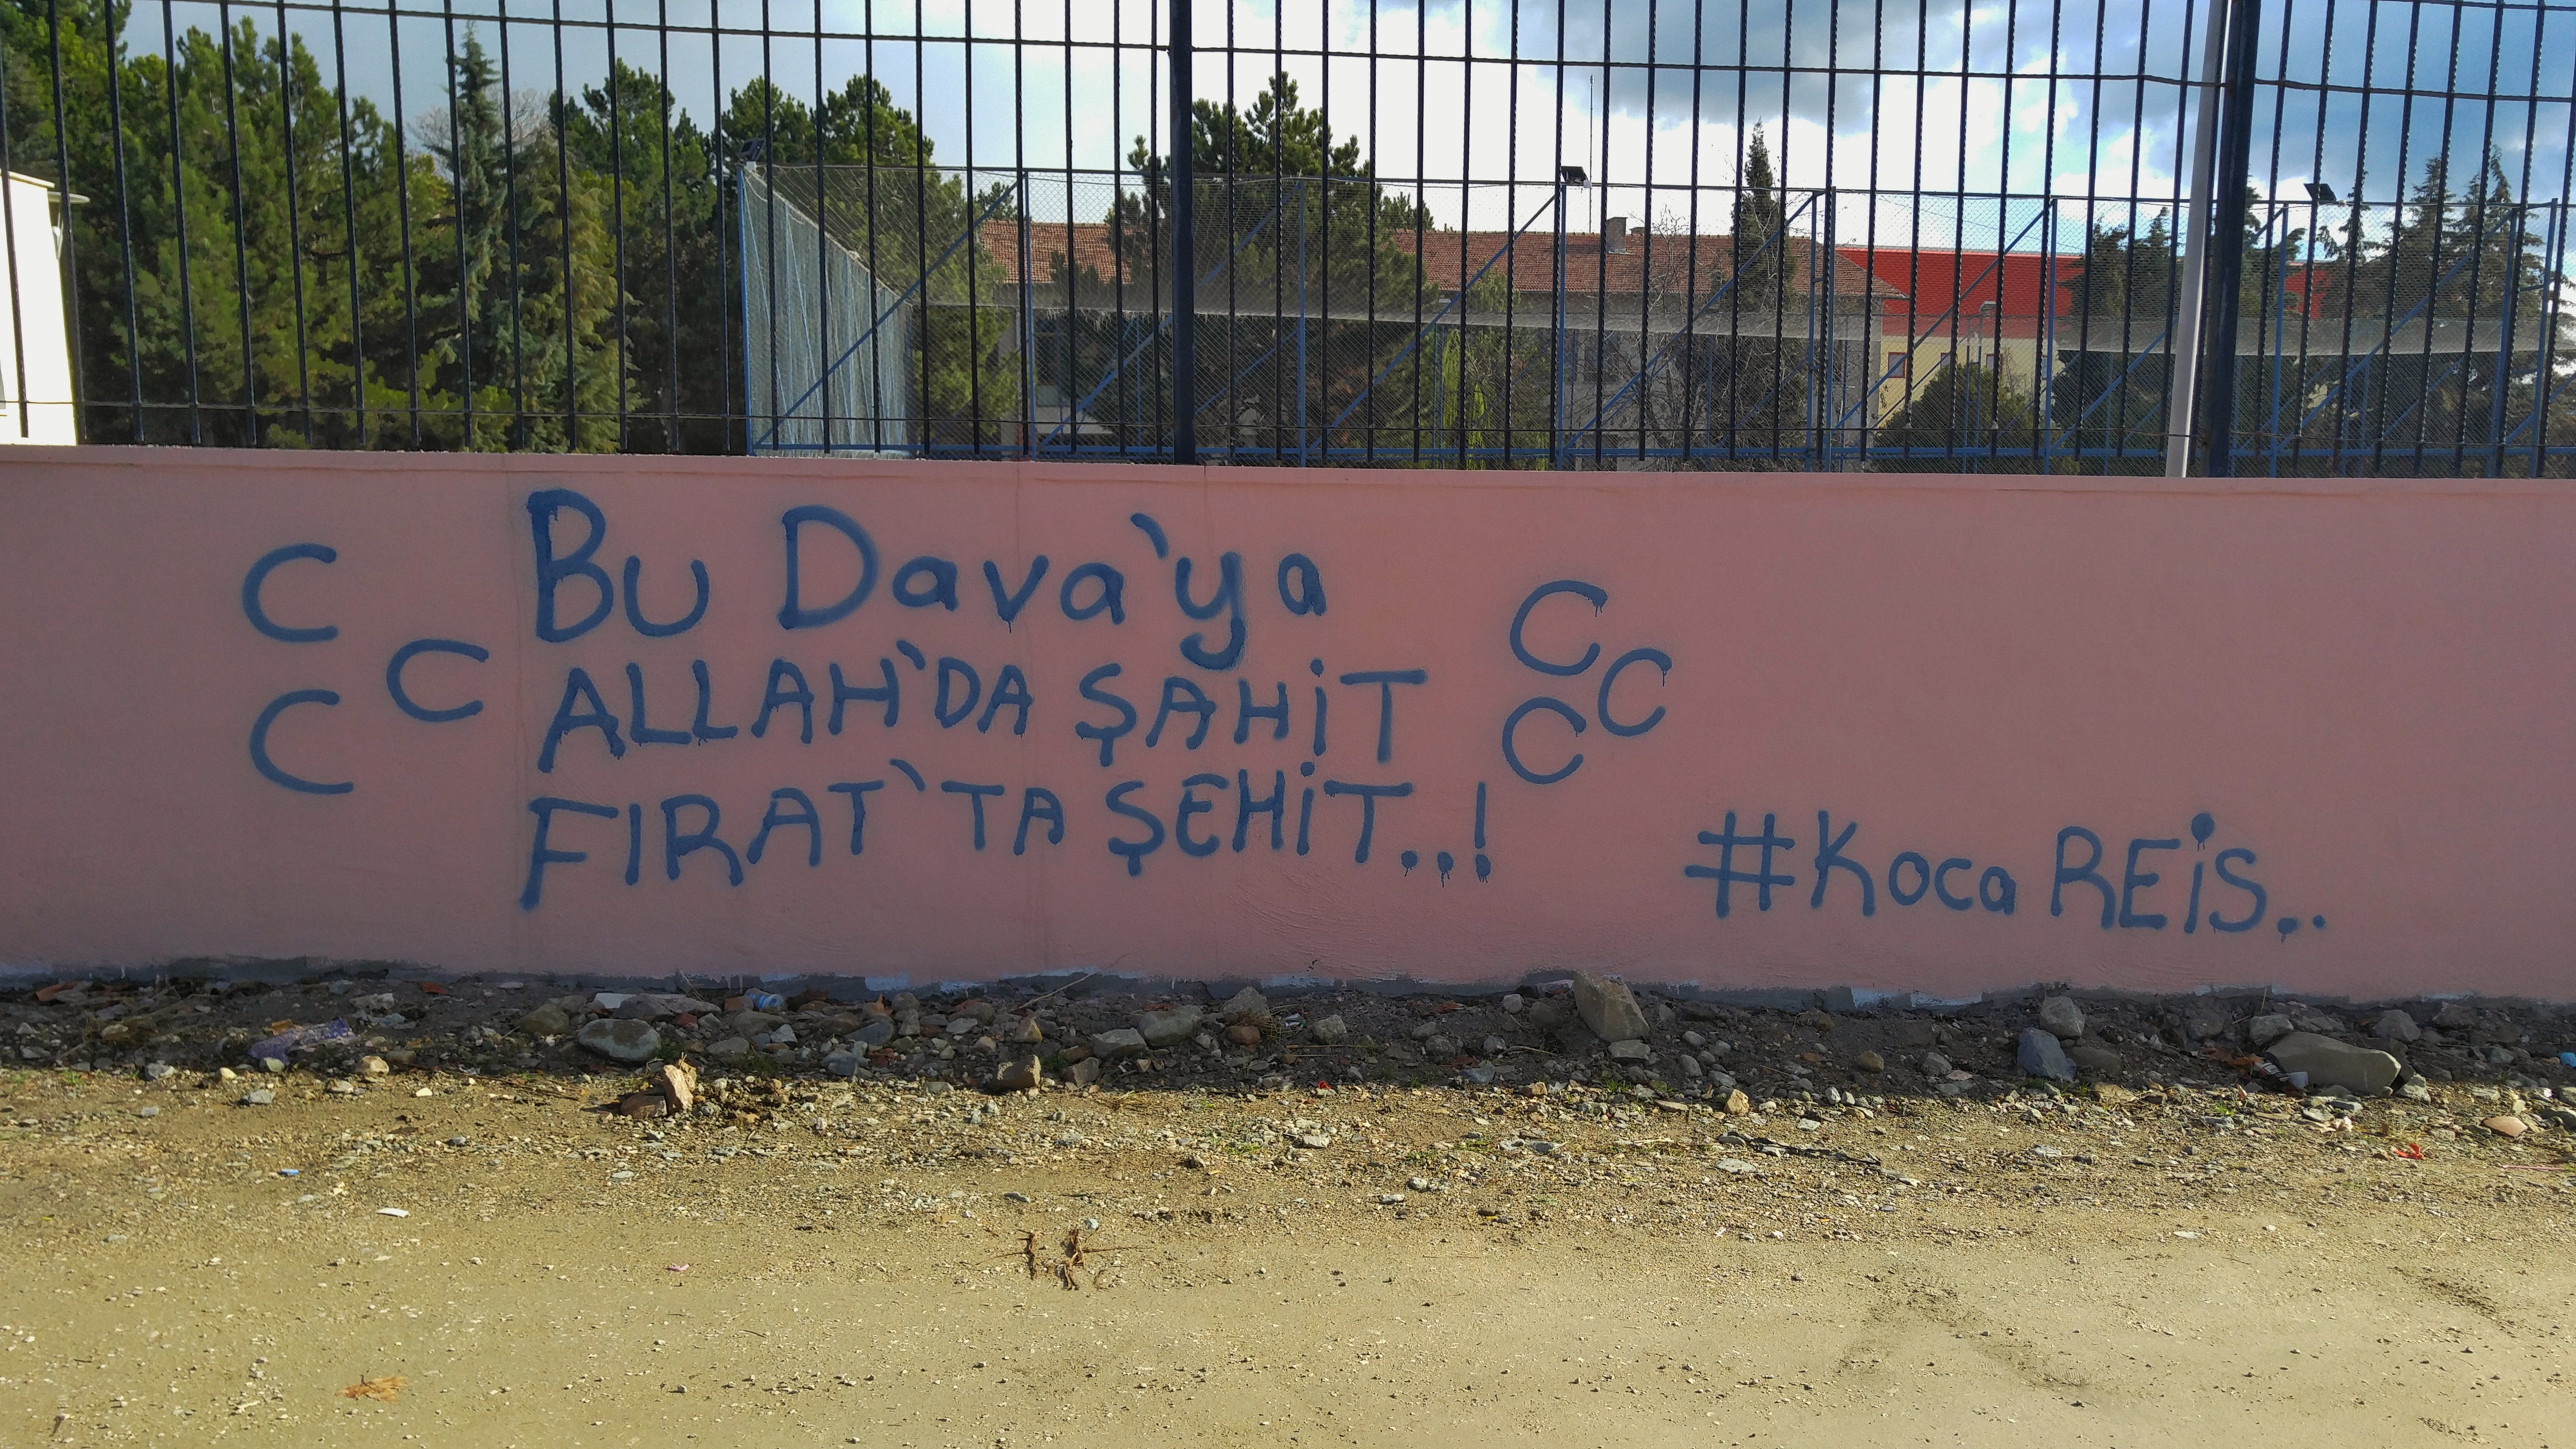 C
C
C
Bu Dava'ya
ALLAH'DA ŞAHİT
FIRAT'TA ŞEHİT..!
C
C
C
#Koca REİS..